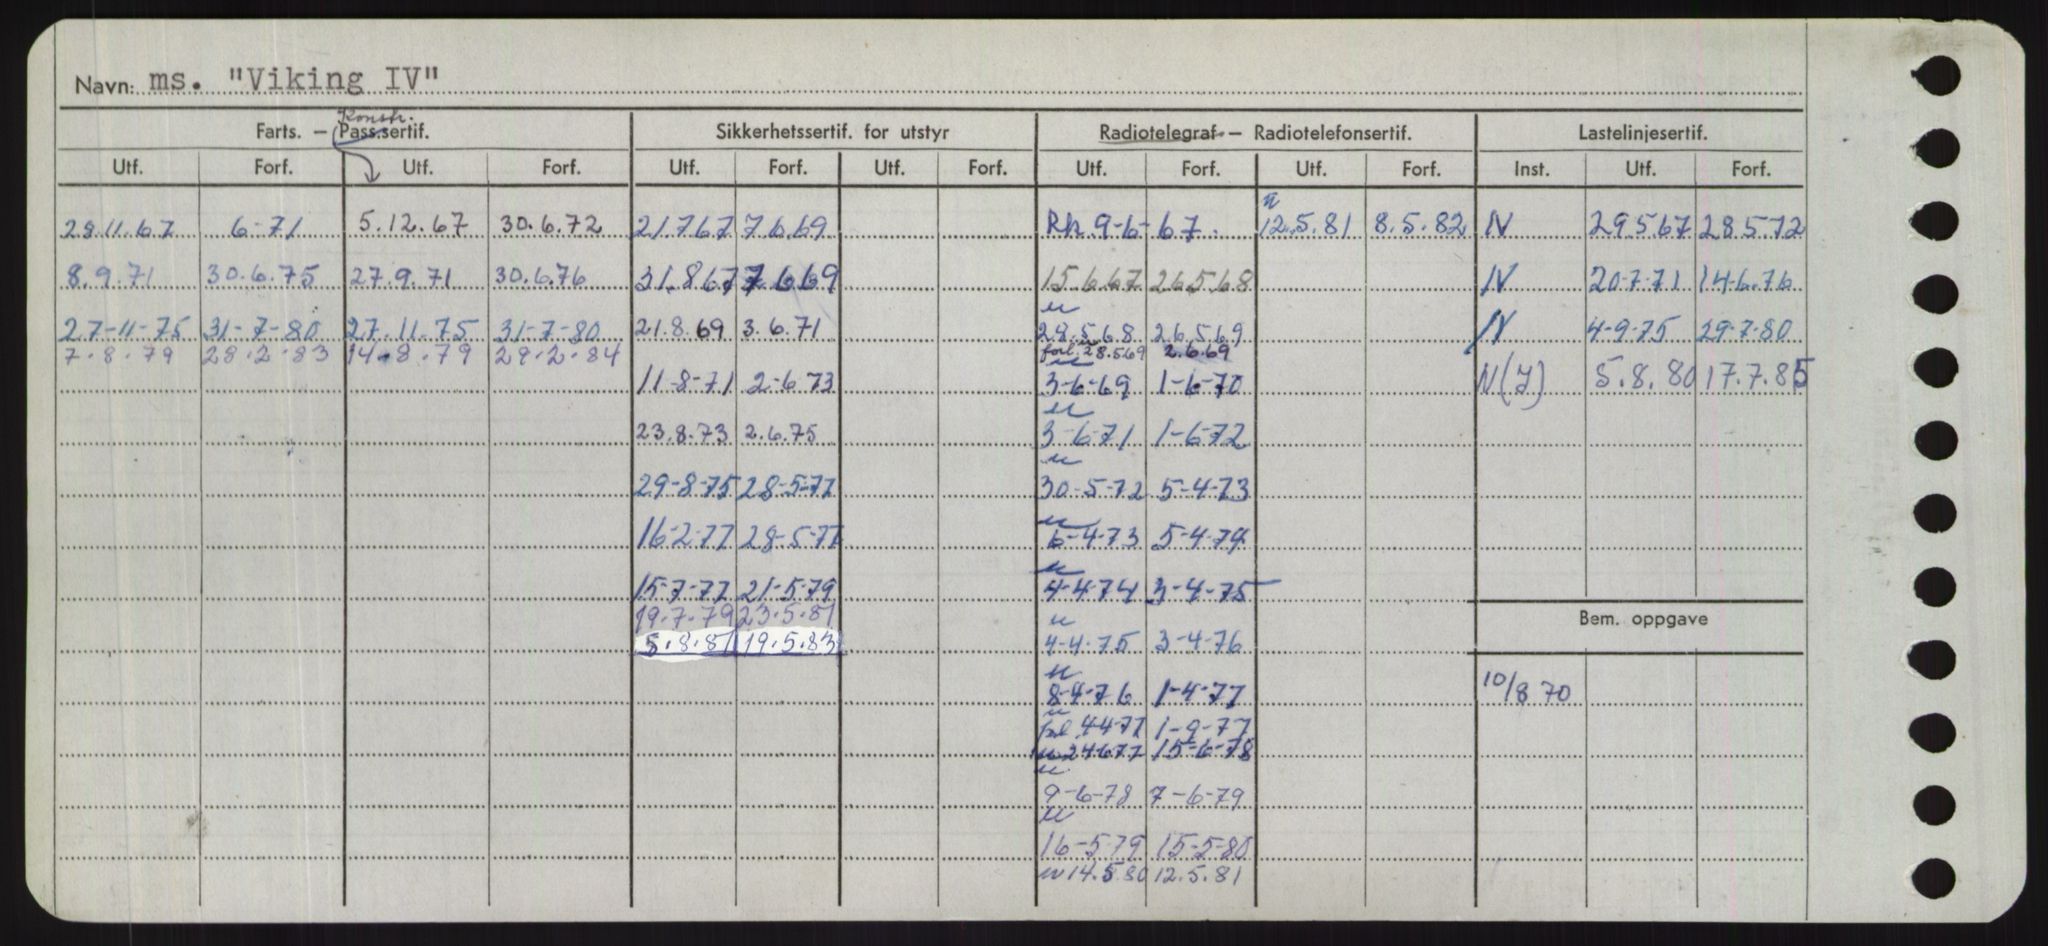 Navn: ms. "Viking IV"
Konstr.
Farts. – Pass.sertif. Sikkerhetssertif. for utstyr Radiotelegraf – Radiotelefonsertif. Lastelinjesertif.
Utf. Forf. Utf. Forf. Utf. Forf. Utf. Forf. Utf. Forf. Utf. Forf. Inst. Utf. Forf.
29.11.67 6-71 5.12.67 30.6.72 21.7.67 7.6.69 RK 9-6-67. n 12.5.81 8.5.82 N 29.5.67 28.5.72
8.9.71 30.6.75 27.9.71 30.6.76 31.8.67 7.6.69 15.6.67 26.5.68 N 20-7-71 14-6.76
27-11-75 31-7-80 27.11.75 31-7-80 21.8.69 3.6.71 n 28.5.68 26.5.69 N 4-9-75 29-7-80
7.8.79 28.2.83 14.8.79 29.2.84 forl. 28.5.69 2.6.69
11-8-71 2-6.73 n 3-6-69 1-6-70 N(J) 5.8.80 17.7.85
23.8.73 2.6.75 n 3-6-71 1-6-72
29-8-75 28-5-77 n 30-5-72 5-4-73
16-2-77 28-5-77 n 6-4-73 5-4-74
15-7-77 21-5-79 n 4-4-74 3-4-75
19.7.79 23.5.81
5.8.81 19.5.83 n 4-4-75 3-4-76
Bem. oppgave
n 8-4-76 1-4-77 10/8 70
n forl. 4-4-77 1-9-77
n 24677 15-6-78
n 9-6-78 7-6-79
n 16-5-79 15-5-80
n 14.5.80 12.5.81